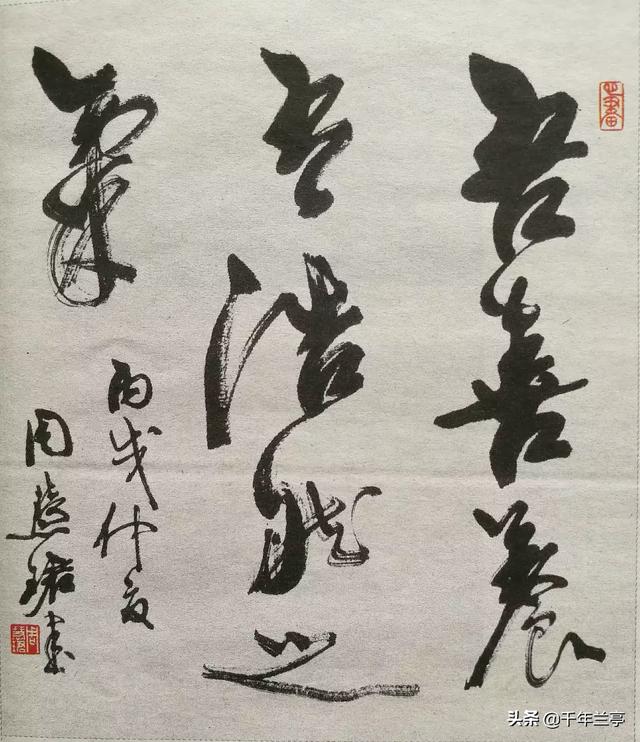 吾善養
吾浩然之
氣
丙戌仲夏
周慧珺書
头条 @千年兰亭